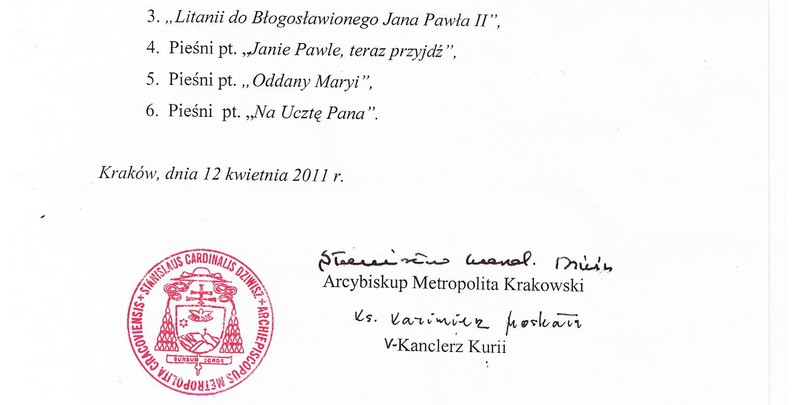 3. „Litanii do Błogosławionego Jana Pawła II”,
4. Pieśni pt. „Janie Pawle, teraz przyjdź”,
5. Pieśni pt. „Oddany Maryi”,
6. Pieśni pt. „Na Ucztę Pana”.
Kraków, dnia 12 kwietnia 2011 r.
+ STANISLAUS CARDINALIS DZIWISZ + ARCHIEPISCOPUS METROPOLITA CRACOVIENSIS
SURSUM CORDA
Arcybiskup Metropolita Krakowski
Ks. Kazimierz Moskała
V-Kanclerz Kurii